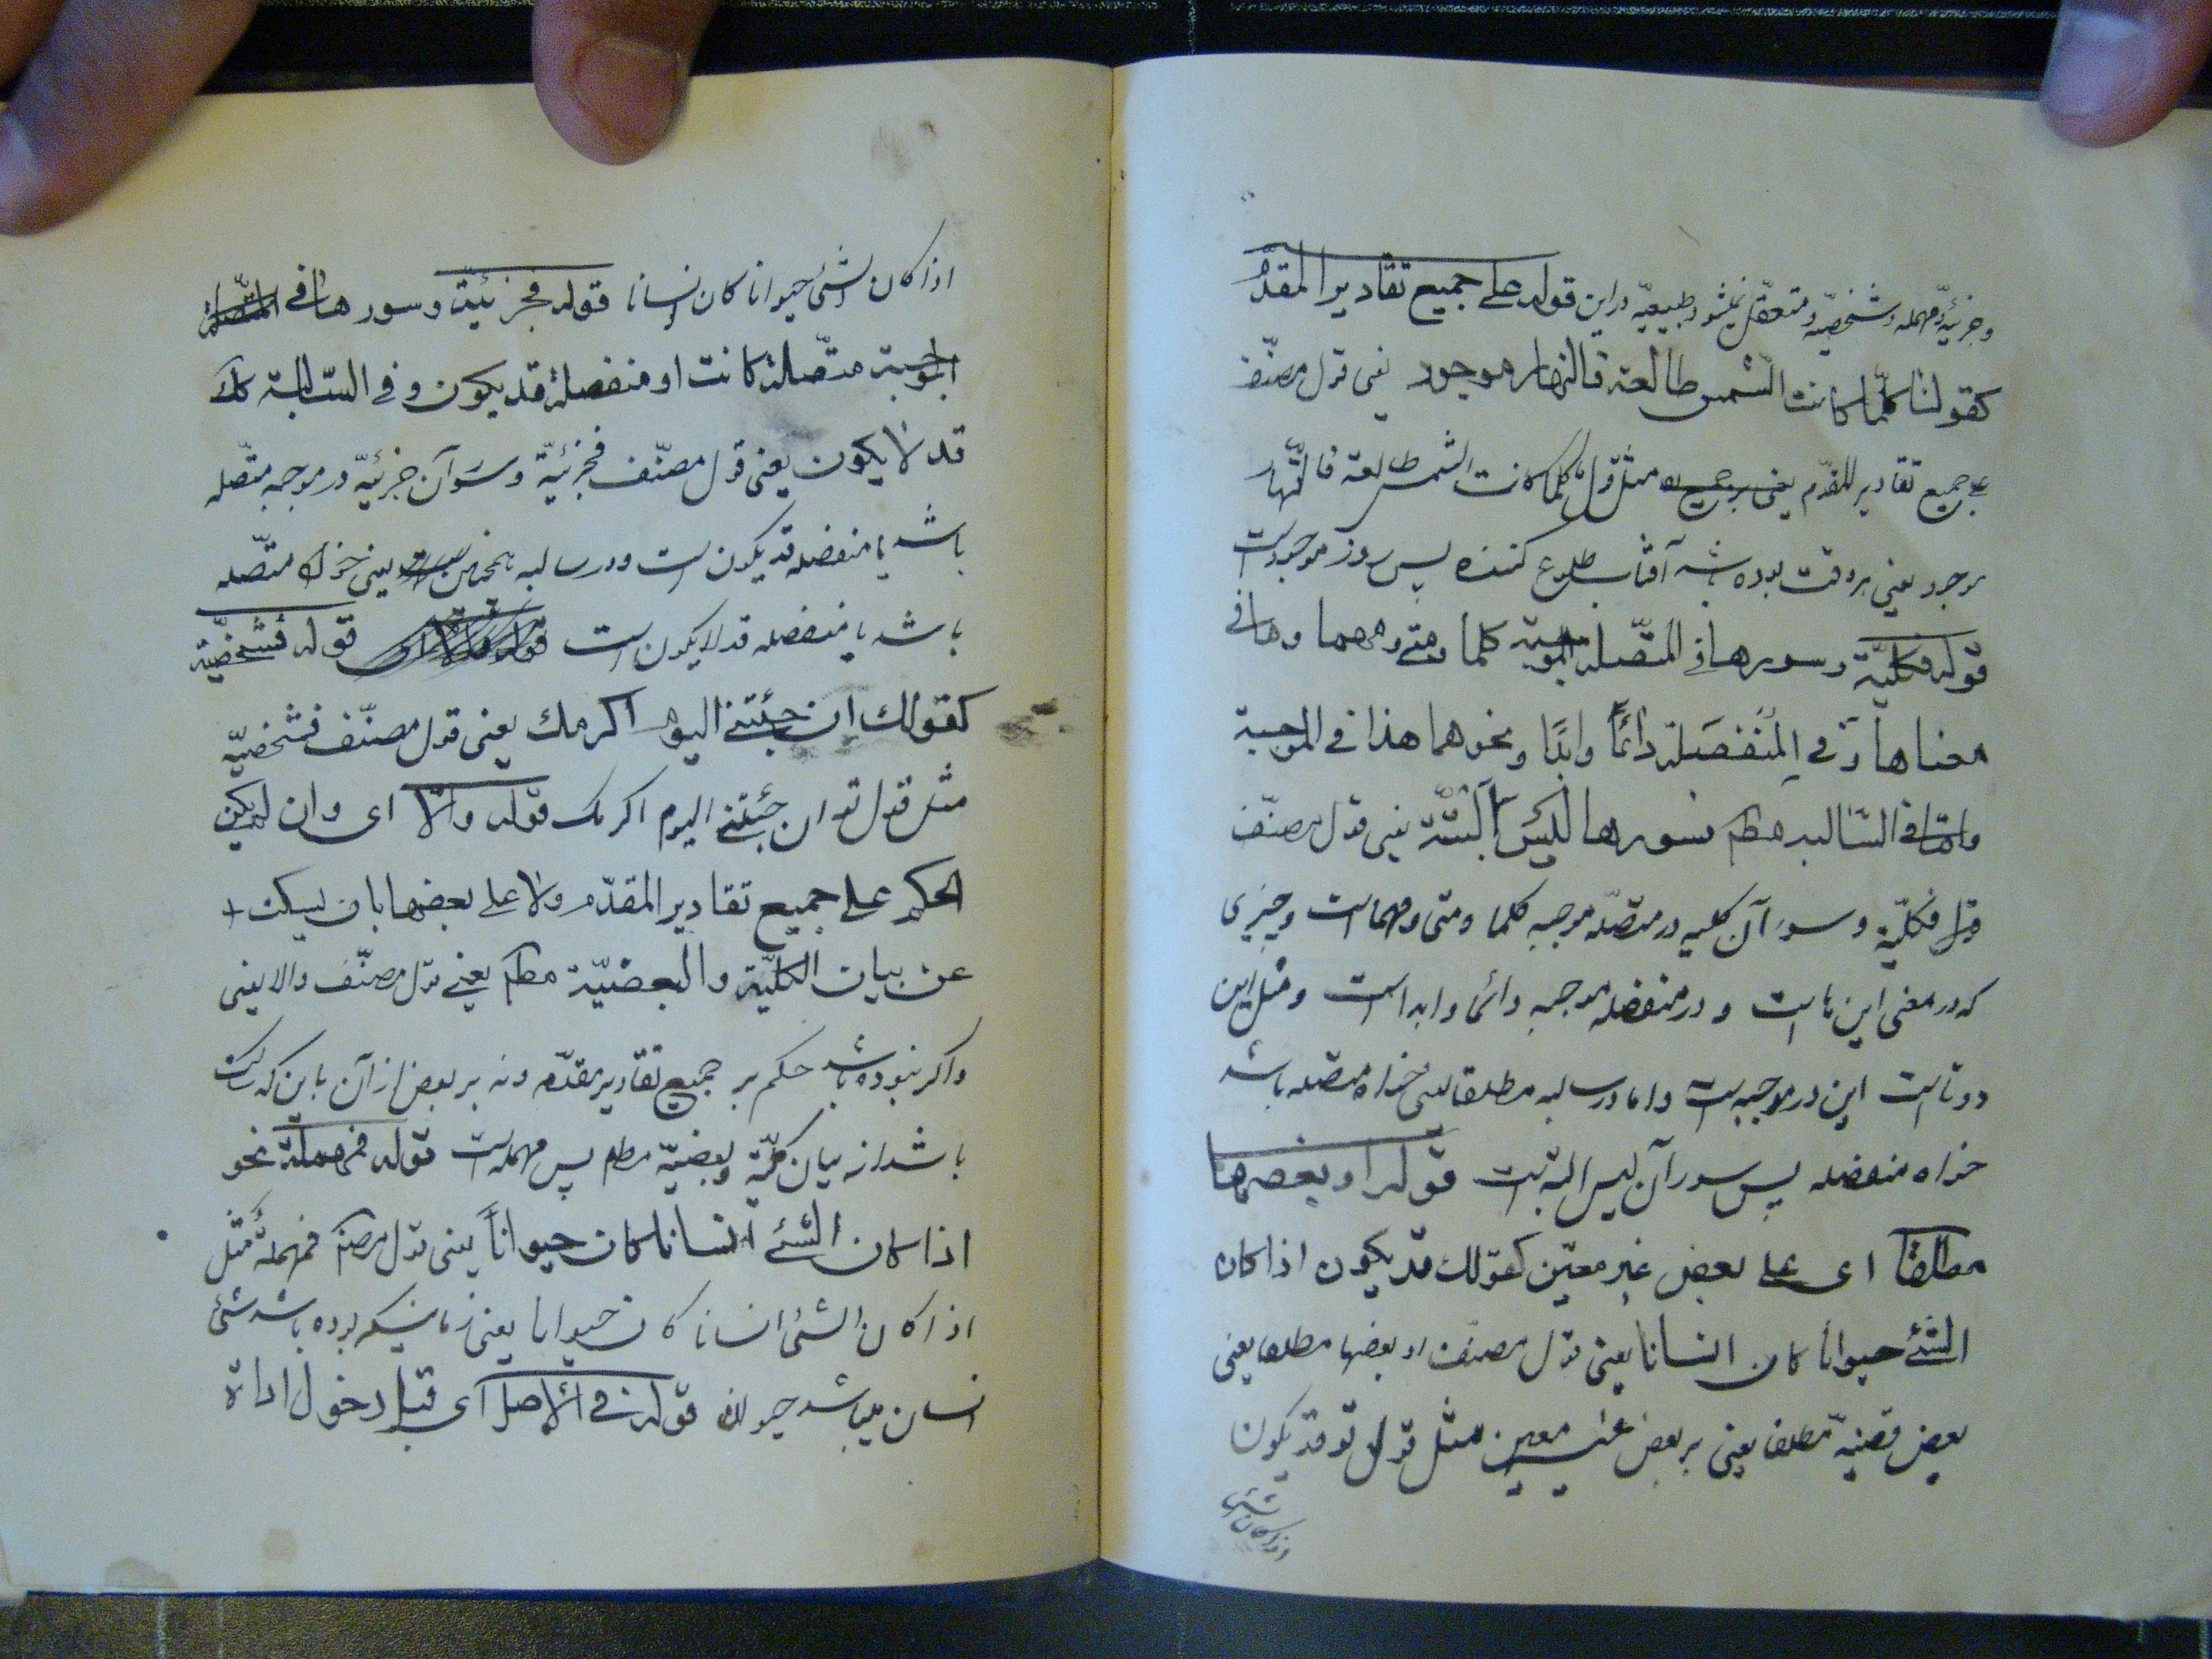 وجزئیّه ومهمله وشخصیّه ومتعقّل نمیشود طبیعیّه در این قوله على جميع تقادير المقدّم
كقولنا كلّما كانت الشمس طالعة فالنهار موجود یعنی قول مصنّف
على جمیع تقادیر المقدّم مثل قول ما كلما كانت الشمس طالعة فالنّهار
موجود یعنی هر وقت بوده باشد آفتاب طلوع کننده پس روز موجود است
قوله فكليّة وسورها في المتّصلة الموجبة كلما ومتى ومهما وما في
معناها وفي المنفصلة دائمًا وابدًا ونحوهما هذا في الموجبة
وامّا في السّالبة مطم فسورها ليس البتّة یعنی قول مصنّف
قوله فکلّیّة وسور آن کلیه در متصّله موجبه کلما ومتی ومهما است وچیزی
که در معنی این ها است و در منفصله موجبه دائما وابدا است ومثل این
دو تا است این در موجبه است واما در سالبه مطلقا یعنی خواه متصله باشد
خواه منفصله پس سور آن لیس البتّه است قوله او بعضها
مطلقا اى على بعض غير معيّن كقولك قد يكون اذا كان
الشئ حيوانا كان انسانا یعنی قول مصنّف او بعضها مطلقا یعنی
بعض قضیّه مطلقا یعنی بر بعض غیر معین مثل قول تو قد یکون
اذا كان الشئ حيوانا كان انسانا قوله فجزئيّة وسورها في
الموجبة متّصلة كانت او منفصلة قد يكون وفي السّالبة كك
قد لا يكون یعنی قول مصنّف فجزئیّة وسور آن جزئیّه در موجبه متّصله
باشد یا منفصله قد یکون است ودر سالبه همچنین یعنی خواه متّصله
باشد یا منفصله قد لا یکون است قوله فشخصّية
كقولك ان جئتني اليوم اكرمك یعنی قول مصنّف فشخصیّه
مثل قول تو ان جئتني اليوم اكرمك قوله والّا اى وان لم يكن
الحكم على جميع تقادير المقدّم ولا على بعضها بان يسكت
عن بيان الكليّة والبعضيّة مطم یعنی قول مصنّف والا یعنی
واگر نبوده باشد حکم بر جمیع تقادیر مقدّم ونه بر بعض از آن باین که ساکت
باشد از بیان کلّیّة وبعضیّه مطم پس مهمله است قوله فمهملة نحو
اذا كان الشئ انسانا كان حيواناً یعنی قول مصنّف فمهملة مثل
اذا کان الشئ انسانا کان حیوانا یعنی زمانیکه بوده باشد شئ
انسان میباشد حیوان قوله في الاصل اى قبل دخول اداة